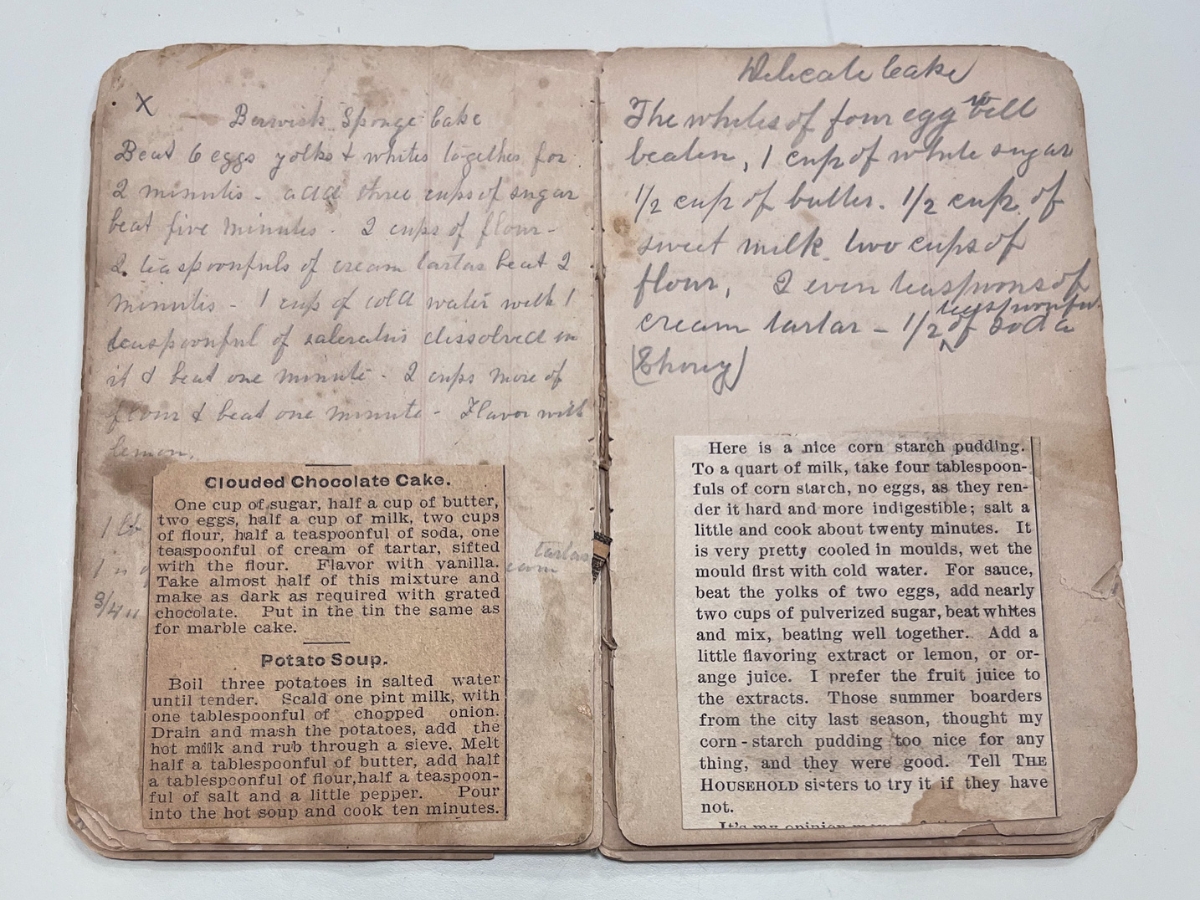 X
Berwick Sponge Cake
Beat 6 eggs yolks & whites together for
2 minutes - add three cups of sugar
beat five minutes - 2 cups of flour -
2 teaspoonfuls of cream tartar beat 2
minutes - 1 cup of cold water with 1
teaspoonful of saleratus dissolved in
it & beat one minute - 2 cups more of
flour & beat one minute - Flavor with
lemon.
1
1
tartar
3/4
Clouded Chocolate Cake.
One cup of sugar, half a cup of butter,
two eggs, half a cup of milk, two cups
of flour, half a teaspoonful of soda, one
teaspoonful of cream of tartar, sifted
with the flour. Flavor with vanilla.
Take almost half of this mixture and
make as dark as required with grated
chocolate. Put in the tin the same as
for marble cake.
Potato Soup.
Boil three potatoes in salted water
until tender. Scald one pint milk, with
one tablespoonful of chopped onion.
Drain and mash the potatoes, add the
hot milk and rub through a sieve. Melt
half a tablespoonful of butter, add half
a tablespoonful of flour, half a teaspoon-
ful of salt and a little pepper. Pour
into the hot soup and cook ten minutes.
Delicate Cake
The whites of four egg well
beaten, 1 cup of white sugar
1/2 cup of butter. 1/2 cup of
sweet milk. two cups of
flour, 2 even teaspoons of
cream tartar - 1/2 teaspoonful of soda
Here is a nice corn starch pudding.
To a quart of milk, take four tablespoon-
fuls of corn starch, no eggs, as they ren-
der it hard and more indigestible; salt a
little and cook about twenty minutes. It
is very pretty cooled in moulds, wet the
mould first with cold water. For sauce,
beat the yolks of two eggs, add nearly
two cups of pulverized sugar, beat whites
and mix, beating well together. Add a
little flavoring extract or lemon, or or-
ange juice. I prefer the fruit juice to
the extracts. Those summer boarders
from the city last season, thought my
corn-starch pudding too nice for any
thing, and they were good. Tell THE
HOUSEHOLD sisters to try it if they have
not.
It's my opinion